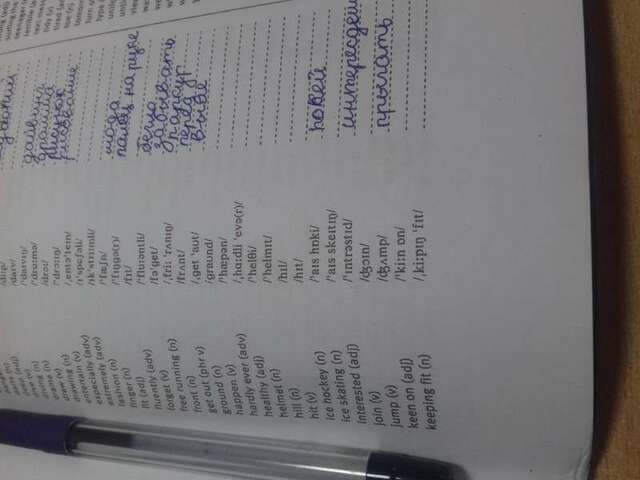 deep (adj) /diːp/
dive (v) /daɪv/
diving (n) /ˈdaɪvɪŋ/ дайвинг
drama (n) /ˈdrɑːmə/ драмма
draw (v) /drɔː/ рисунок
drawing (n) /ˈdrɔːɪŋ/ рисование
entertain (v) /ˌentəˈteɪn/
especially (adv) /ɪˈspeʃəli/
extremely (adv) /ɪkˈstriːmli/
fashion (n) /ˈfæʃn/ мода
finger (n) /ˈfɪŋɡə(r)/ палец на руке
fit (adj) /fɪt/
fluently (adv) /ˈfluːəntli/ бегло
forget (v) /fəˈɡet/ забывать
free running (n) /ˌfriː ˈrʌnɪŋ/ паркур
front (n) /frʌnt/ перед
get out (phr v) /ˌɡet ˈaʊt/
ground (n) /ɡraʊnd/
happen (v) /ˈhæpən/
hardly ever (adv) /ˌhɑːdli ˈevə(r)/
healthy (adj) /ˈhelθi/
helmet (n) /ˈhelmɪt/
hill (n) /hɪl/
hit (v) /hɪt/
ice hockey (n) /ˈaɪs hɒki/ хокей
ice skating (n) /ˈaɪs skeɪtɪŋ/
interested (adj) /ˈɪntrəstɪd/
join (v) /dʒɔɪn/
jump (v) /dʒʌmp/ прыгать
keen on (adj) /ˈkiːn ɒn/
keeping fit (n) /ˌkiːpɪŋ ˈfɪt/